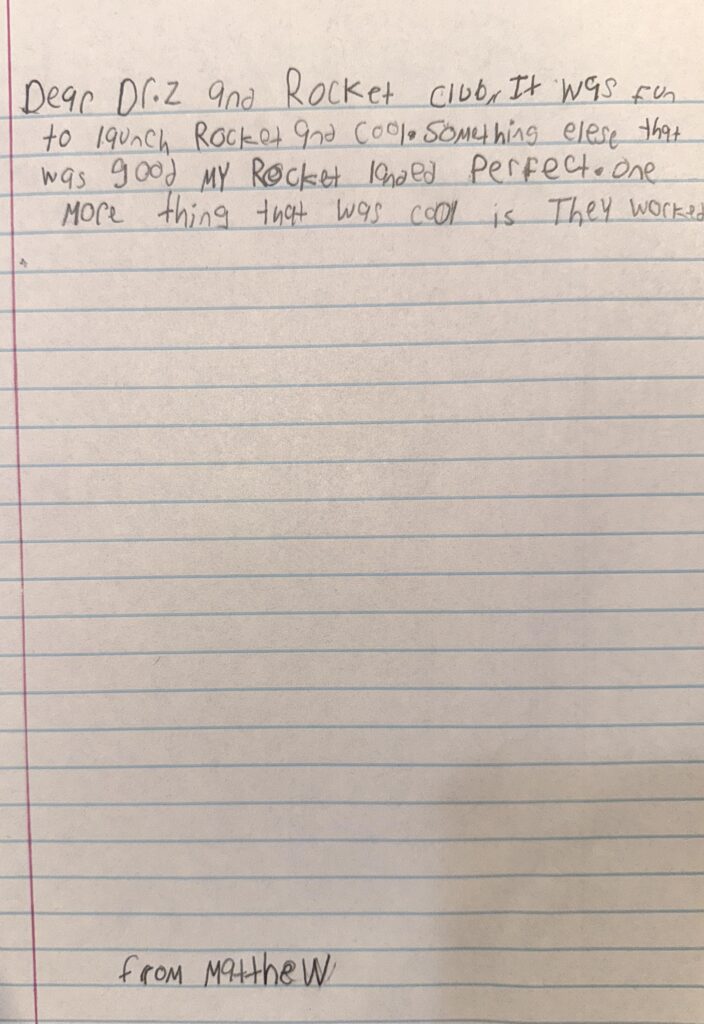 Dear Dr.Z and Rocket club, It was fun
to launch Rocket and cool. Something elese that
was good My Rocket landed perfect. one
More thing that was cool is They worked
.
from Matthew